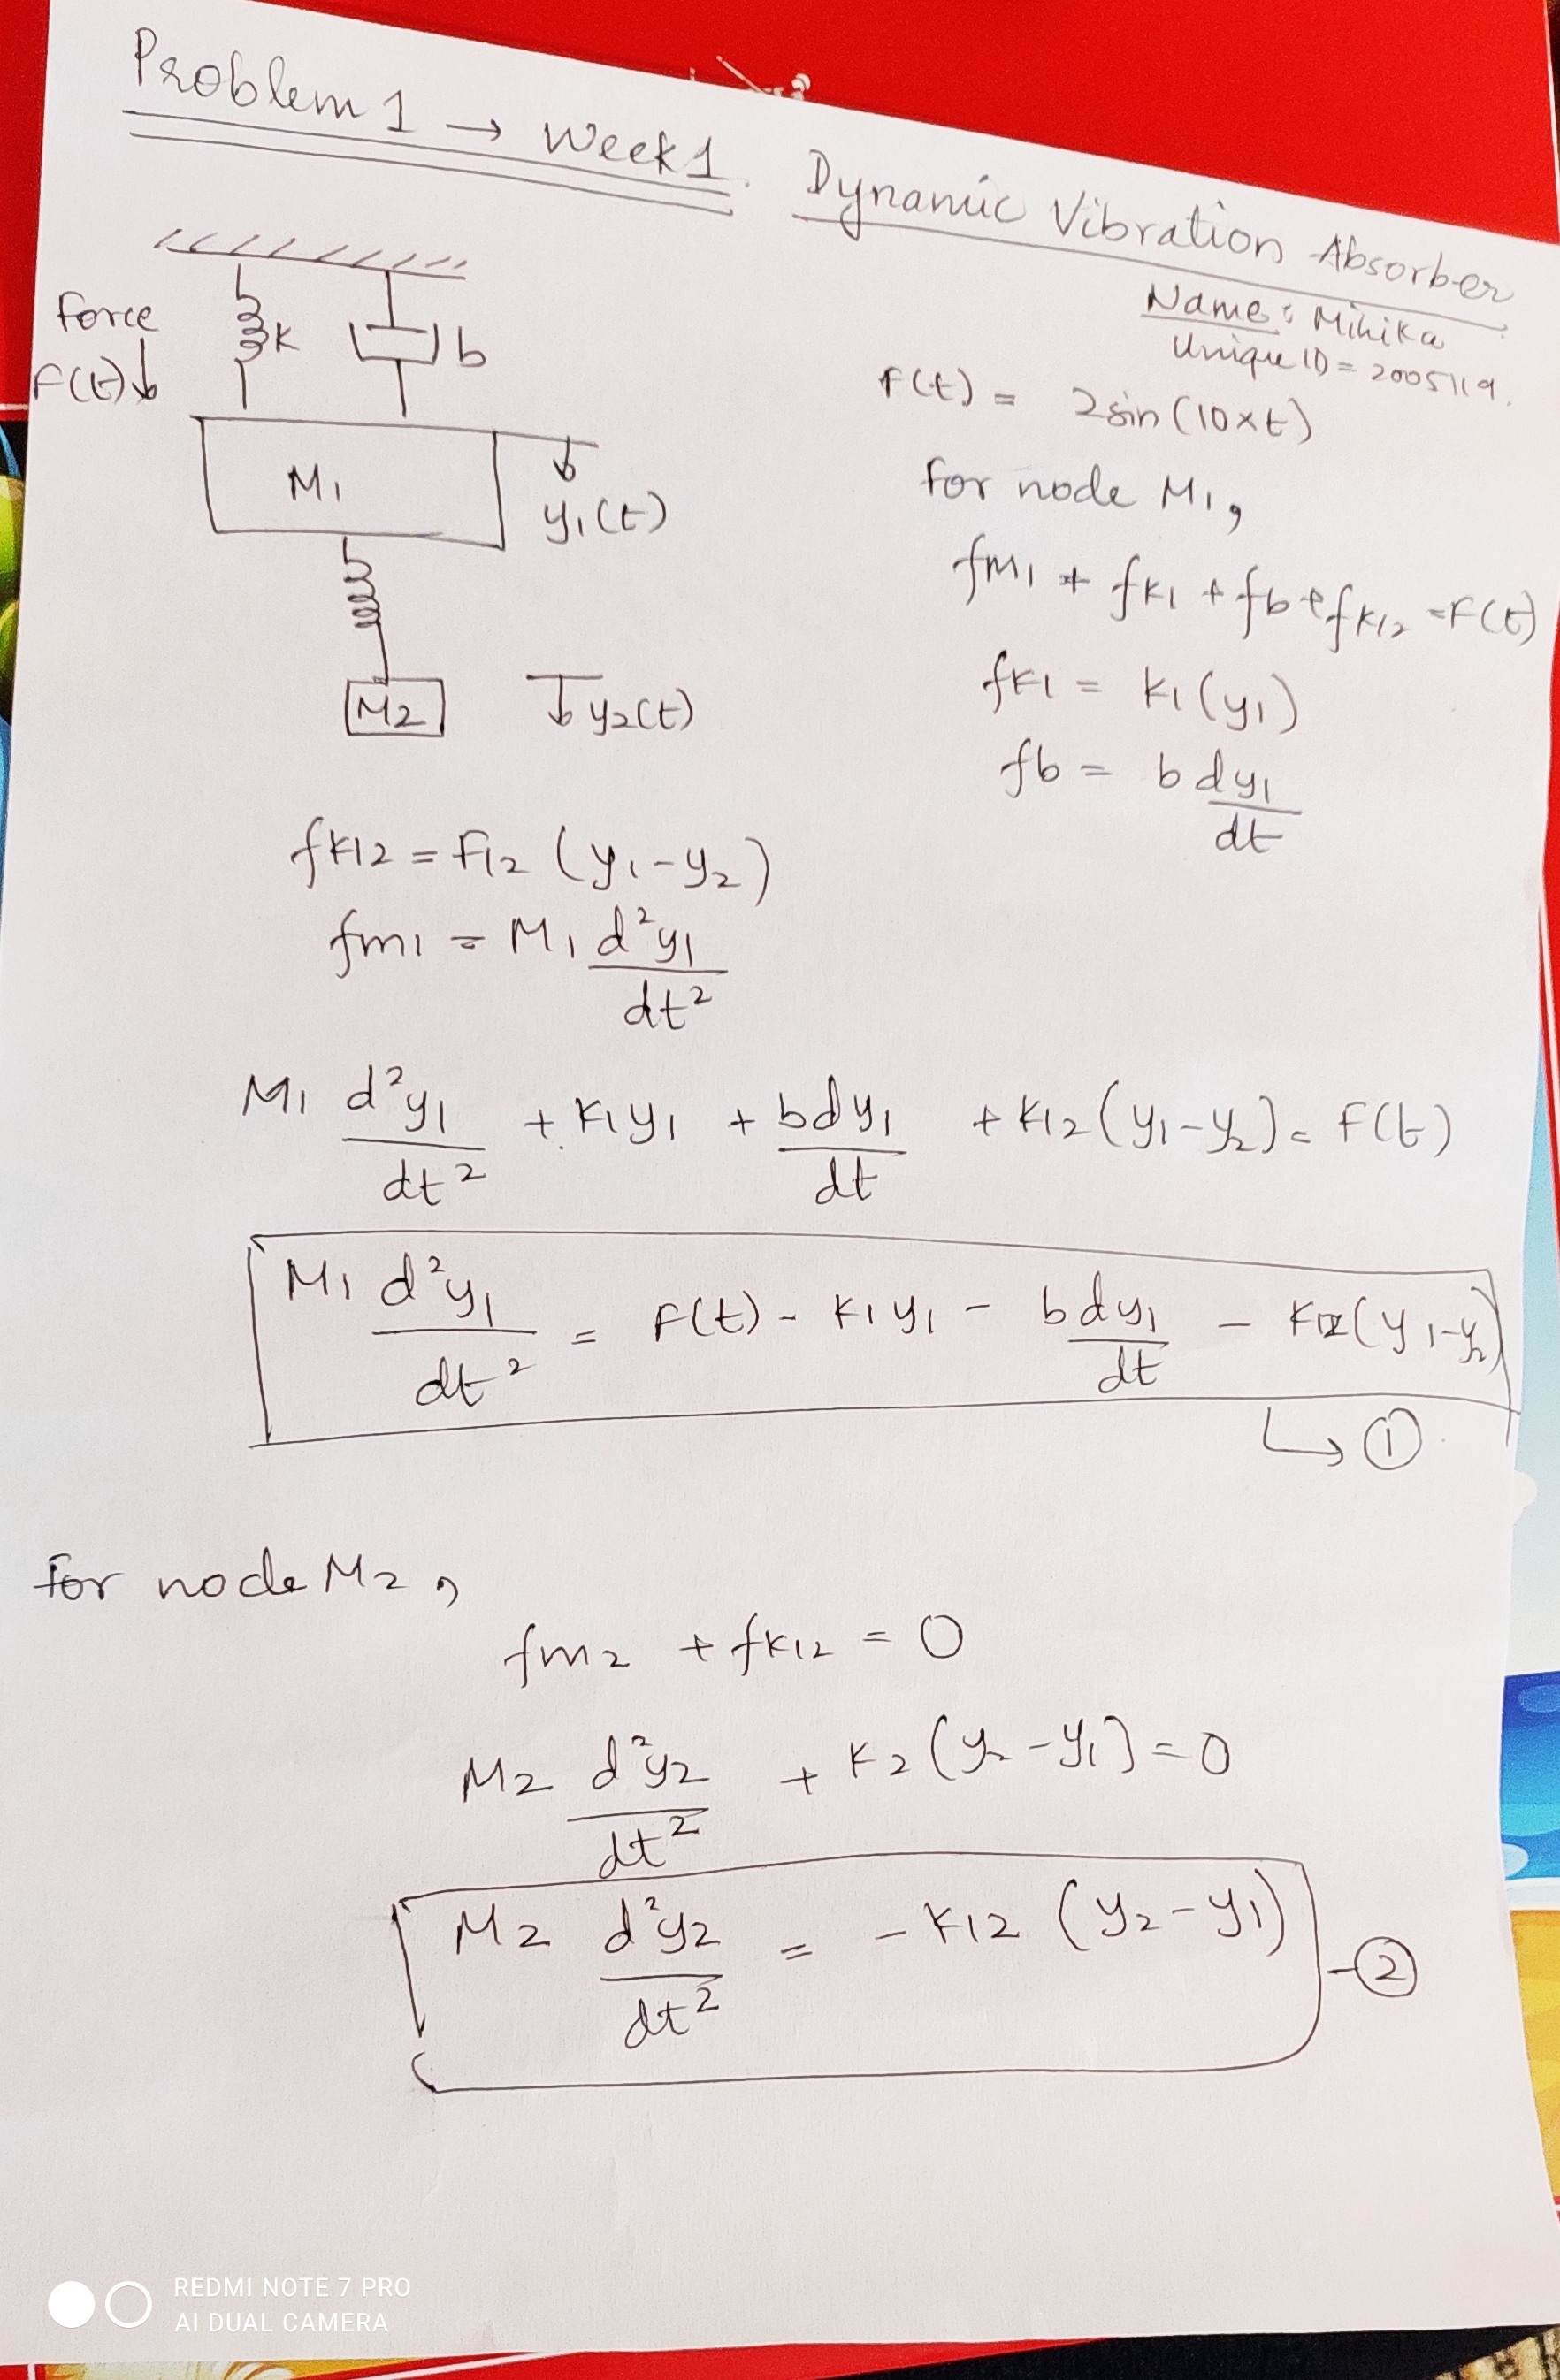 Problem 1 → Week 1. Dynamic Vibration Absorber
Name: Mihika
Unique ID = 2005119.
Force
F(t)
K
b
M1
y1(t)
M2
y2(t)
F(t) = 2sin(10×t)
for node M1,
fM1 + fK1 + fb + fK12 = F(t)
fK1 = K1(y1)
fb = b dy1/dt
fK12 = F12 (y1-y2)
fm1 = M1 d²y1/dt²
M1 d²y1/dt² + K1y1 + bdy1/dt + K12(y1-y2) = F(t)
M1 d²y1/dt² = F(t) - K1y1 - bdy1/dt - K12(y1-y2)
↳ ①
for node M2,
fm2 + fK12 = 0
M2 d²y2/dt² + K2(y2-y1) = 0
M2 d²y2/dt² = -K12 (y2-y1) - ②
REDMI NOTE 7 PRO
AI DUAL CAMERA